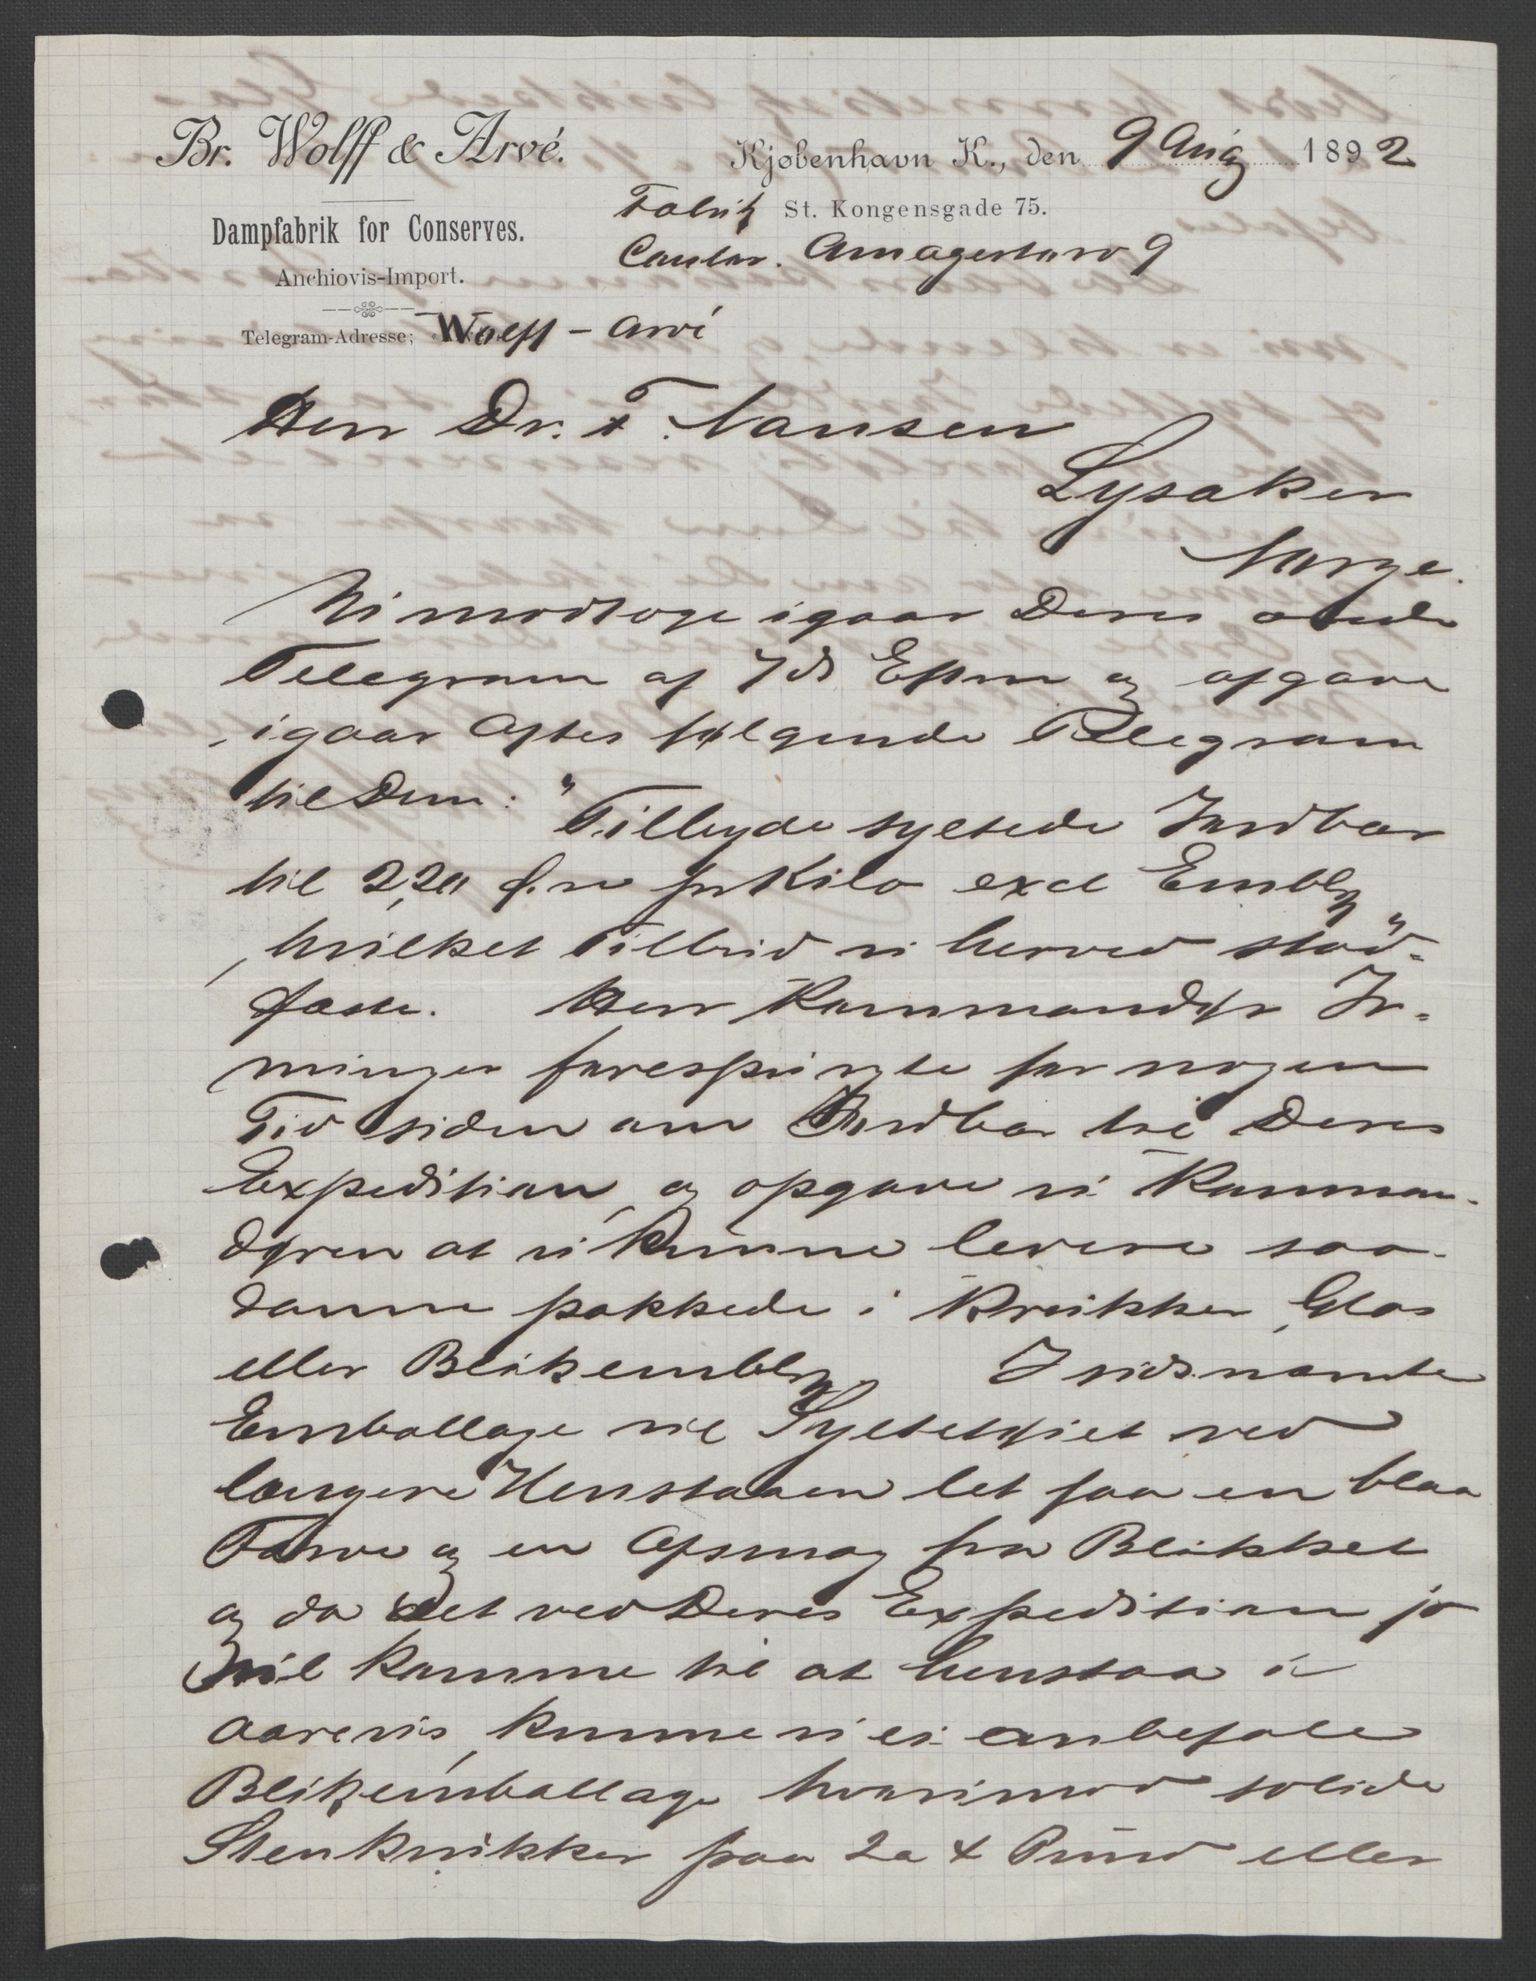 Br. Wolff & Arvé.
Kjøbenhavn K., den 9 Aug 1892
Fabrik St. Kongensgade 75.
Dampfabrik for Conserves.
Contor. Amagertorv 9
Anchiovis-Import.
Telegram-Adresse; Wolff – Arvé
Herr Dr. F. Nansen
Lysaker
Norge.
Vi modtoge igaar Deres ærede
Telegram af 7 ds Eftm og afgave
igaar Aftes følgende Telegram
til Dem: "Tilbyde syltede Jordbær
til 2,20 Øre pr Kilo excl Emblg"
, hvilket Tilbud vi herved stad-
fæste. Herr Kommandør Ir-
minger forespurgte for nogen
Tid siden om Jordbær til Deres
Expedition, og opgave vi Komman-
døren at vi kunne levere saa-
danne pakkede i Krukker, Glas
eller Blikemblg. I sidsnævnte
Emballage vil Syltetøiet ved
længere Henstaaen let faa en blaa
Farve og en Afsmag fra Blikket
og da det ved Deres Expedition jo
vil komme til at henstaa i
aarevis, kunne vi ei anbefale
Blikemballage hvorimod solide
Stenkrukker paa 2 a 4 Pund eller